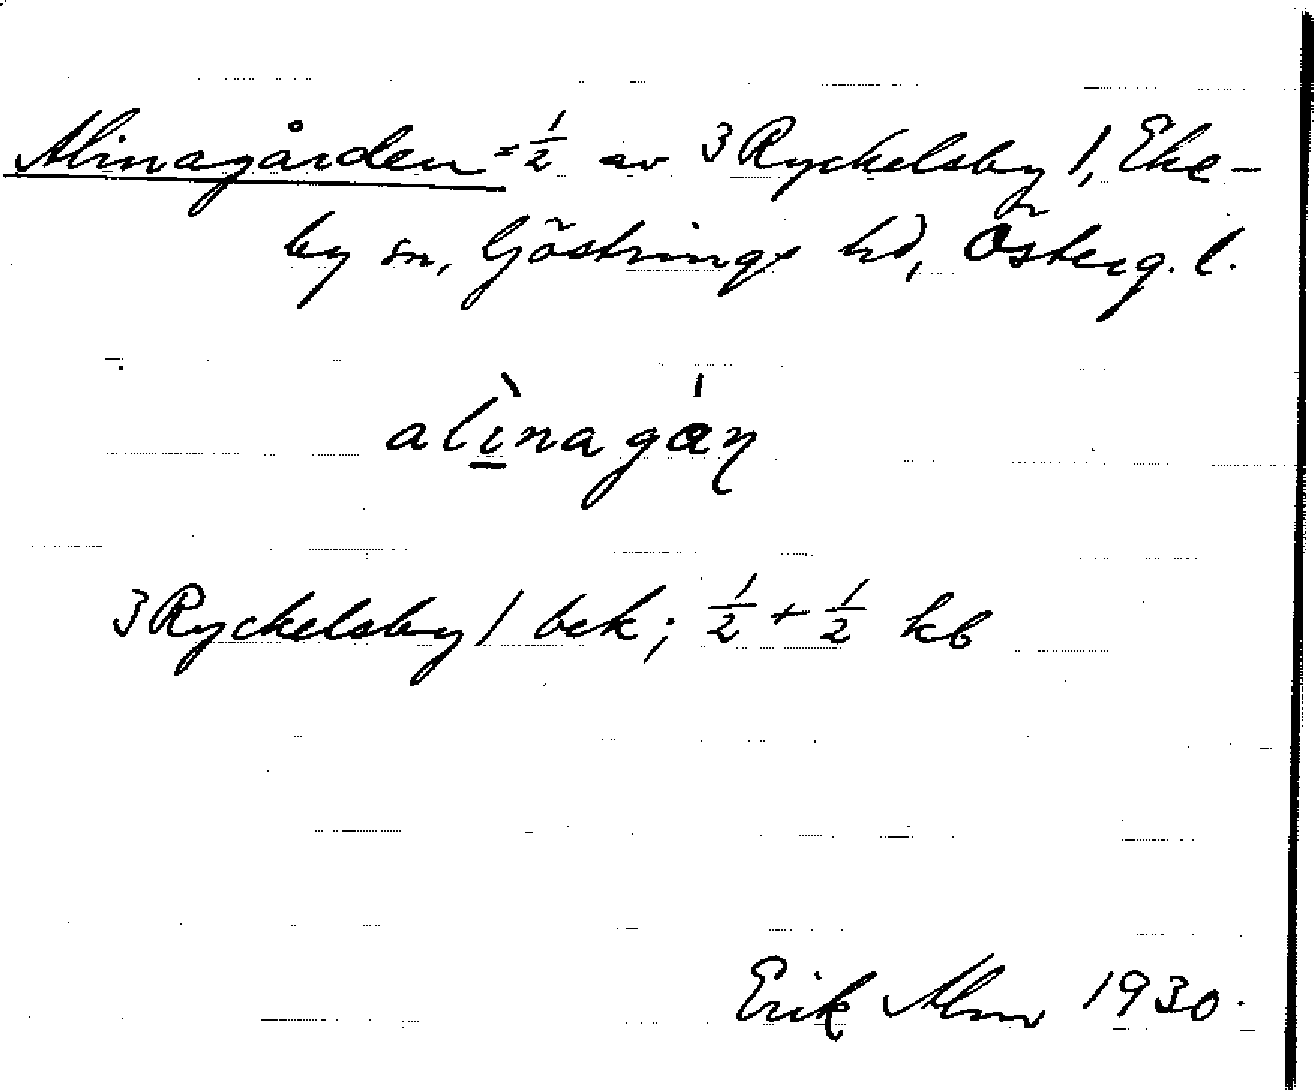 Alinagården = ½ av 3 Ryckelsby 1, Eke-
by sn, Göstrings hd, Österg. l.
alìnagáṇ
3 Ryckelsby 1 bck; ½ + ½ kb
Erik Alm 1930.